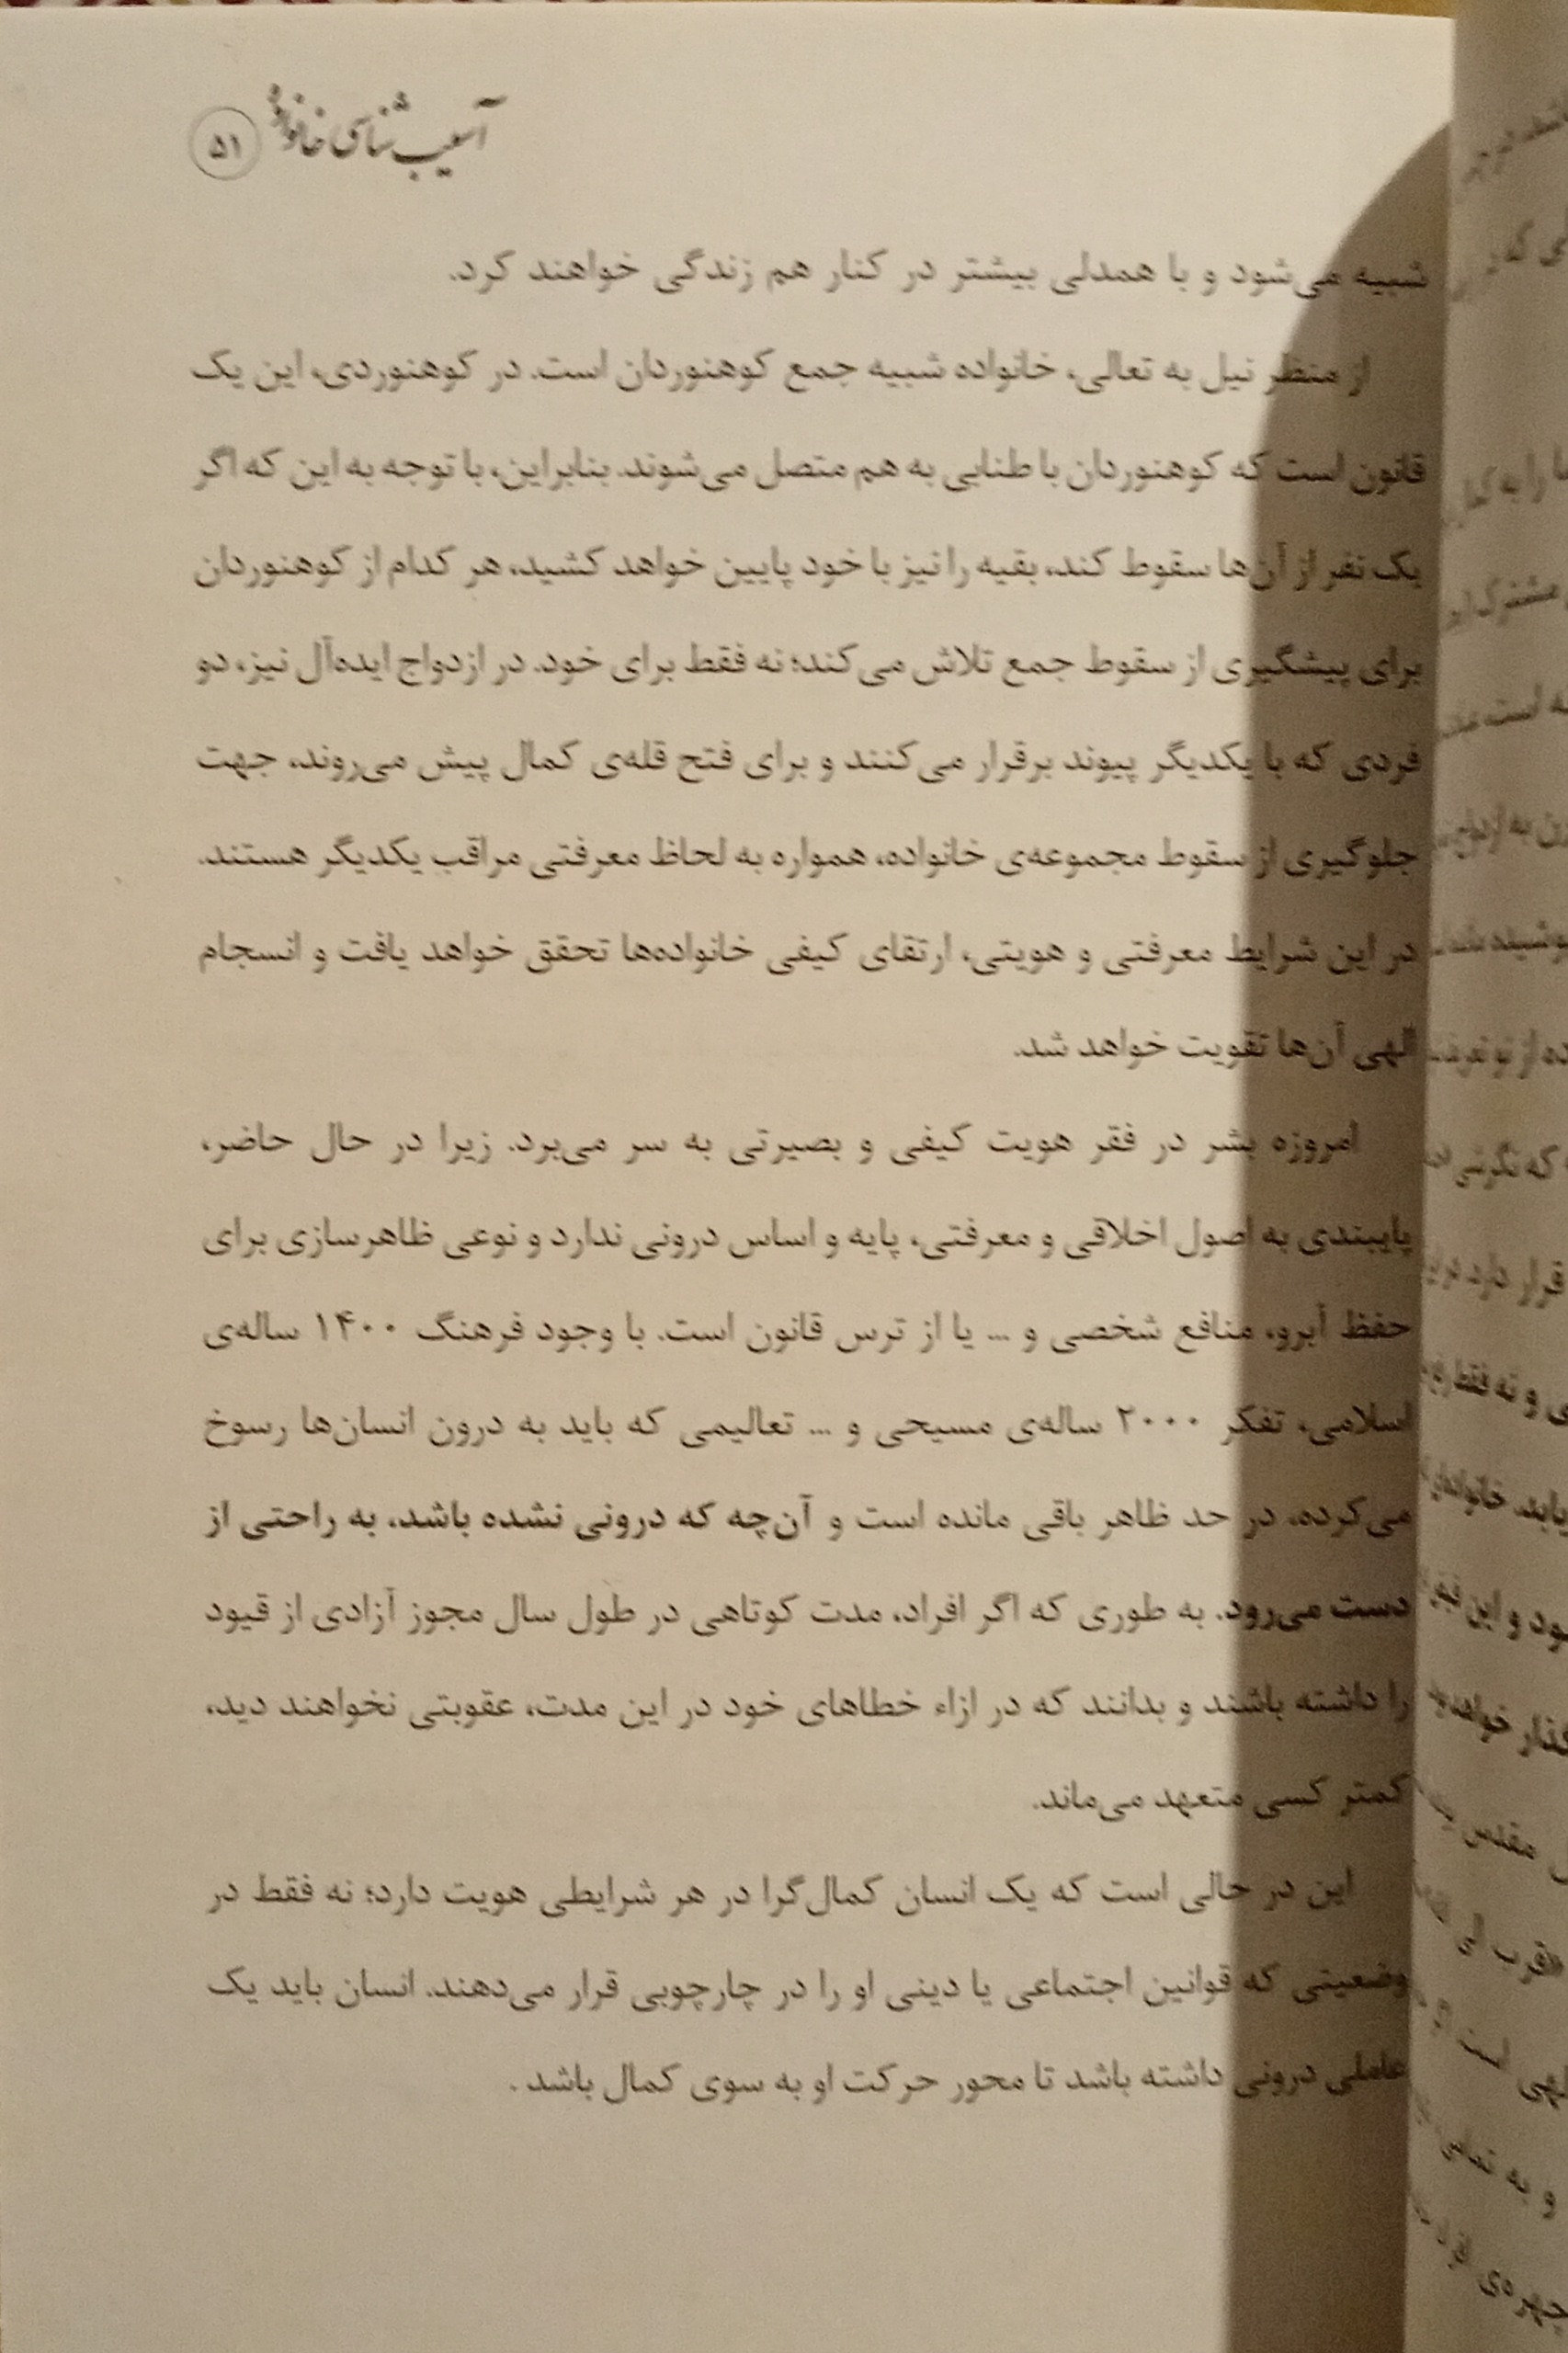 آسیب‌شناسی خانواده ۵۱
شبیه می‌شود و با همدلی بیشتر در کنار هم زندگی خواهند کرد.
از منظر نیل به تعالی، خانواده شبیه جمع کوهنوردان است. در کوهنوردی، این یک
قانون است که کوهنوردان با طنابی به هم متصل می‌شوند. بنابراین، با توجه به این که اگر
یک نفر از آن‌ها سقوط کند، بقیه را نیز با خود پایین خواهد کشید، هر کدام از کوهنوردان
برای پیشگیری از سقوط جمع تلاش می‌کند؛ نه فقط برای خود. در ازدواج ایده‌آل نیز، دو
فردی که با یکدیگر پیوند برقرار می‌کنند و برای فتح قله‌ی کمال پیش می‌روند، جهت
جلوگیری از سقوط مجموعه‌ی خانواده، همواره به لحاظ معرفتی مراقب یکدیگر هستند.
در این شرایط معرفتی و هویتی، ارتقای کیفی خانواده‌ها تحقق خواهد یافت و انسجام
الهی آن‌ها تقویت خواهد شد.
امروزه بشر در فقر هویت کیفی و بصیرتی به سر می‌برد. زیرا در حال حاضر،
پایبندی به اصول اخلاقی و معرفتی، پایه و اساس درونی ندارد و نوعی ظاهرسازی برای
حفظ آبرو، منافع شخصی و ... یا از ترس قانون است. با وجود فرهنگ ۱۴۰۰ ساله‌ی
اسلامی، تفکر ۲۰۰۰ ساله‌ی مسیحی و ... تعالیمی که باید به درون انسان‌ها رسوخ
می‌کرده، در حد ظاهر باقی مانده است و آن‌چه که درونی نشده باشد، به راحتی از
دست می‌رود. به طوری که اگر افراد، مدت کوتاهی در طول سال مجوز آزادی از قیود
را داشته باشند و بدانند که در ازاء خطاهای خود در این مدت، عقوبتی نخواهند دید،
کمتر کسی متعهد می‌ماند.
این در حالی است که یک انسان کمال‌گرا در هر شرایطی هویت دارد؛ نه فقط در
وضعیتی که قوانین اجتماعی یا دینی او را در چارچوبی قرار می‌دهند. انسان باید یک
عاملی درونی داشته باشد تا محور حرکت او به سوی کمال باشد.